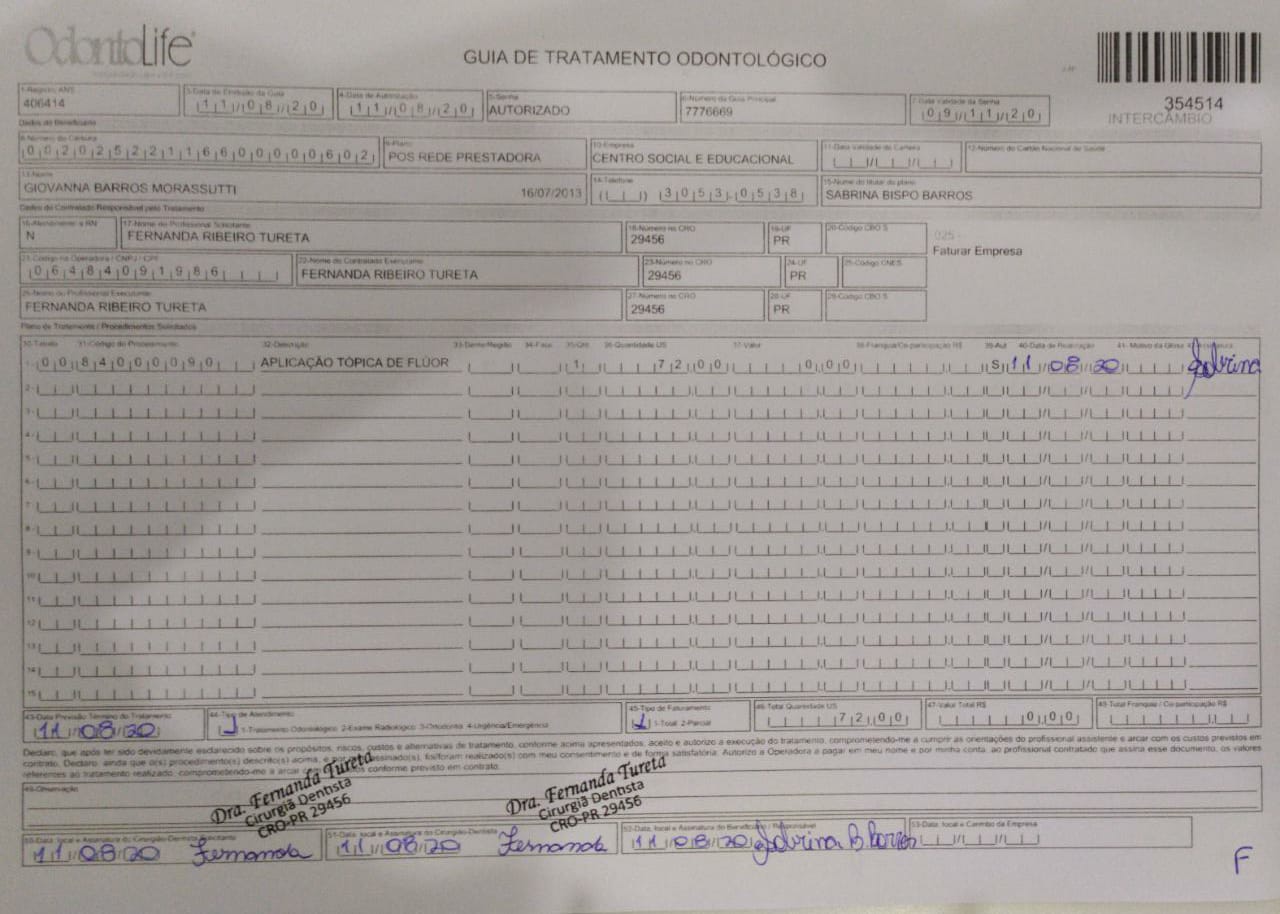 OdontoLife
GUIA DE TRATAMENTO ODONTOLÓGICO
354514
INTERCÂMBIO
1-Registro ANS
406414
3-Data de Emissão da Guia
11/08/20
4-Data de Autorização
11/08/20
5-Senha
AUTORIZADO
6-Número da Guia Principal
7776669
7-Data Validade da Senha
09/11/20
Dados do Beneficiário
8-Número da Carteira
00202522116600000602
9-Plano
POS REDE PRESTADORA
10-Empresa
CENTRO SOCIAL E EDUCACIONAL
11-Data Validade da Carteira
12-Número do Cartão Nacional de Saúde
13-Nome
GIOVANNA BARROS MORASSUTTI 16/07/2013
14-Telefone
( ) 3053-0538
15-Nome do titular do plano
SABRINA BISPO BARROS
Dados do Contratado Responsável pelo Tratamento
16-Atendimento a RN
N
17-Nome do Profissional Solicitante
FERNANDA RIBEIRO TURETA
18-Número no CRO
29456
19-UF
PR
20-Código CBO S
025 -
Faturar Empresa
21-Código na Operadora / CNPJ / CPF
06484091986
22-Nome do Contratado Executante
FERNANDA RIBEIRO TURETA
23-Número no CRO
29456
24-UF
PR
25-Código CNES
26-Nome do Profissional Executante
FERNANDA RIBEIRO TURETA
27-Número no CRO
29456
28-UF
PR
29-Código CBO S
Plano de Tratamento / Procedimentos Solicitados
30-Tabela 31-Código do Procedimento 32-Descrição 33-Dente/Região 34-Face 35-Qtd 36-Quantidade US 37-Valor 38-Franquia/Co-participação R$ 39-Aut 40-Data de Realização 41- Motivo da Glosa
1- 00 84000090 APLICAÇÃO TÓPICA DE FLÚOR 1 72,00 0,00 S 11/08/20 Sabrina
2-
3-
4-
5-
6-
7-
8-
9-
10-
11-
12-
13-
14-
15-
43-Data Previsão Término do Tratamento
11/08/20
44-Tipo de Atendimento
1 1-Tratamento Odontológico 2-Exame Radiológico 3-Ortodontia 4-Urgência/Emergência
45-Tipo de Faturamento
1 1-Total 2-Parcial
46-Total Quantidade US
72,00
47-Valor Total R$
0,00
48-Total Franquia / Co-participação R$
Declaro, que após ter sido devidamente esclarecido sobre os propósitos, riscos, custos e alternativas de tratamento, conforme acima apresentados, aceito e autorizo a execução do tratamento, comprometendo-me a cumprir as orientações do profissional assistente e arcar com os custos previstos em
contrato. Declaro, ainda que o(s) procedimento(s) descrito(s) acima, e por mim assinado(s), foi/foram realizado(s) com meu consentimento e de forma satisfatória. Autorizo a Operadora a pagar em meu nome e por minha conta, ao profissional contratado que assina esse documento, os valores
referentes ao tratamento realizado, comprometendo-me a arcar com os custos conforme previsto em contrato.
49-Observação
Dra. Fernanda Tureta
Cirurgiã Dentista
CRO-PR 29456
Dra. Fernanda Tureta
Cirurgiã Dentista
CRO-PR 29456
50-Data, local e Assinatura do Cirurgião-Dentista Solicitante
11/08/20 Fernanda
51-Data, local e Assinatura do Cirurgião-Dentista
11/08/20 Fernanda
52-Data, local e Assinatura do Beneficiário / Responsável
11/08/20 Sabrina B. Barros
53-Data, local e Carimbo da Empresa
F